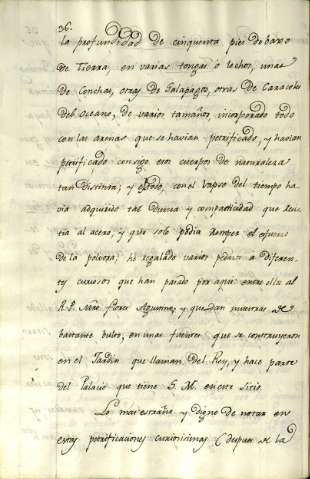 36.
la profundidad de cinquenta pies debaxo
de Tierra, en varias tongas ô lechos, unas
de Conchas, otras de Galapagos, otras de Caracoles
del Oceano, de varios tamaños, incorporado todo
con las arenas que se havian petrificado, y havian
petrificado consigo esos cuerpos de naturaleza
tan distinta; y todo, con el lapso del tiempo ha
via adquirido tal dureza y compacticidad que resis
tia al acero, y que solo podia romper el esfuerzo
de la polvora; hè regalado varios pedazos a diferen
curiosos que han pasado por aqui entre ellos al
R. P. Mro. Florez Agustino; y quedan muestras de
bastante bulto, en unas fuentes que se construyeron
en el Jardin que llaman del Rey, y hace parte
del Palacio que tiene S. M. en este Sitio.
Lo mas estraño, y digno de notar en
estas petrificaciones curiosisimas (despues de la